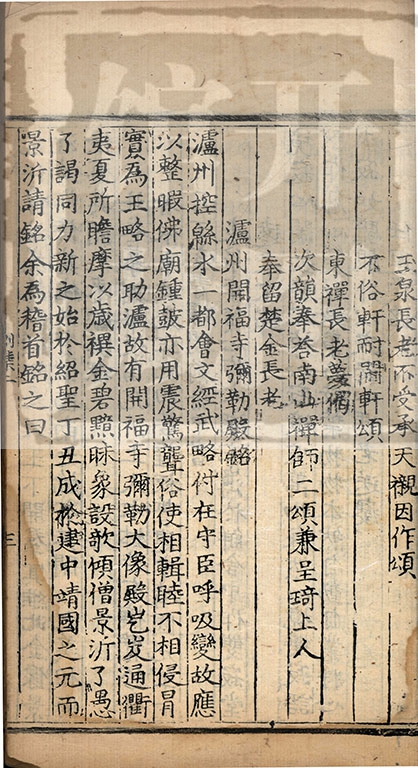 玉泉長老不受承天覩因作頌
不俗軒耐閑軒頌
東禪長老夢偈
次韻奉荅南山禪師二頌兼呈琦上人
奉留楚金長老
瀘州開福寺彌勒殿銘
瀘州控緜水一都會文經武略付在守臣呼吸變故應
以整暇佛廟鍾鼓亦用震驚聾俗使相輯睦不相侵冒
實為王略之助瀘故有開福寺彌勒大像殿岌岌通衢
夷夏所瞻摩以歳禩金碧黯昧象設欹傾僧景沂了愚
了謁同力新之始於紹聖丁丑成於建中靖國之元而
景沂請銘余為稽首銘之曰
別集二
三